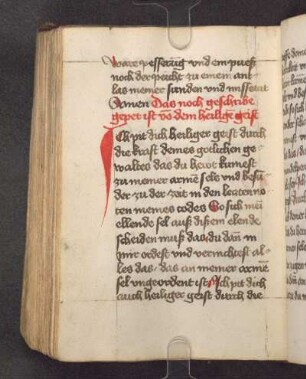 ware pesserung vnd ein puesz
noch der peicht zu einem ant
las meiner sunden vnd missetat
Amen Das noch geschribe
gepet ist võ dem heilige geist
Ich pit dich heiliger geist durch
die kraft deines gotlichen ge
waltes das du heut kumest
zu meiner armẽ sele vnd besu
der zu der zeit in den leczten no
ten meines todes So sich mein
ellende sel ausz disem elende
scheiden musz das du dañ in
mir ordest vnd vernichtest al
les das das an meiner armẽ
sel vngeordent ist Ich pit dich
auch heiliger geist durch die